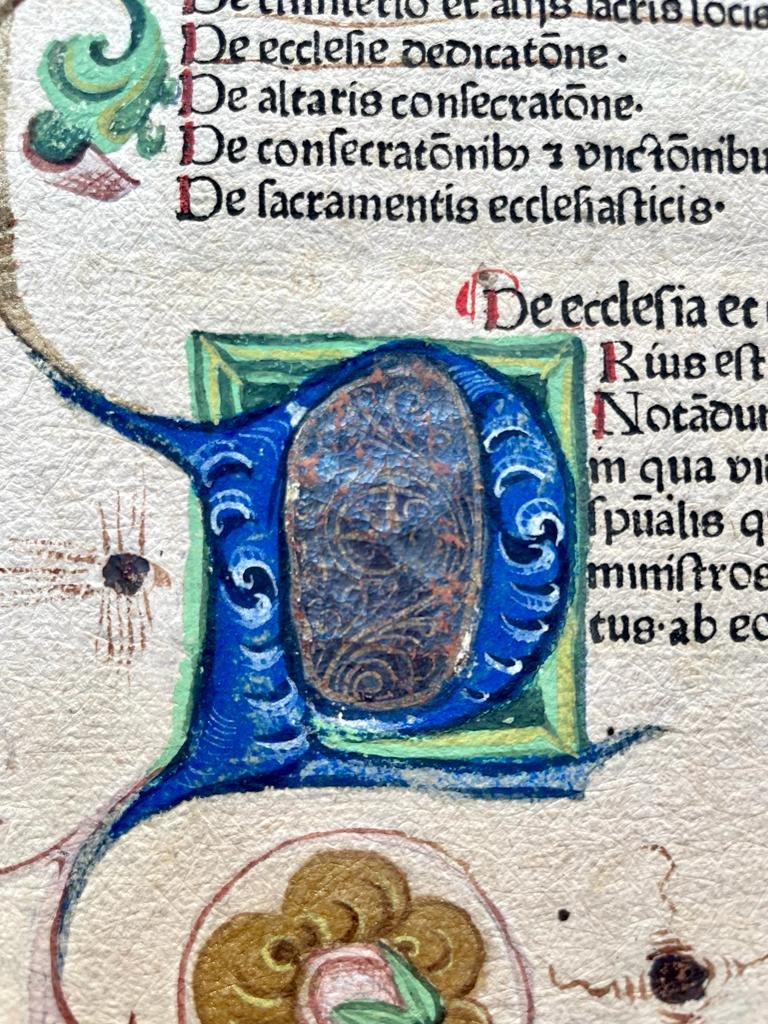 De cimiterio et alijs sacris locis
De ecclesie dedicatōne.
De altaris consecratōne.
De consecratōnibꝫ ⁊ vnctōnibu
De sacramentis ecclesiasticis.
¶ De ecclesia et
P
Rius est
Notādu
in qua
spūalis q
ministros
tus. ab ec